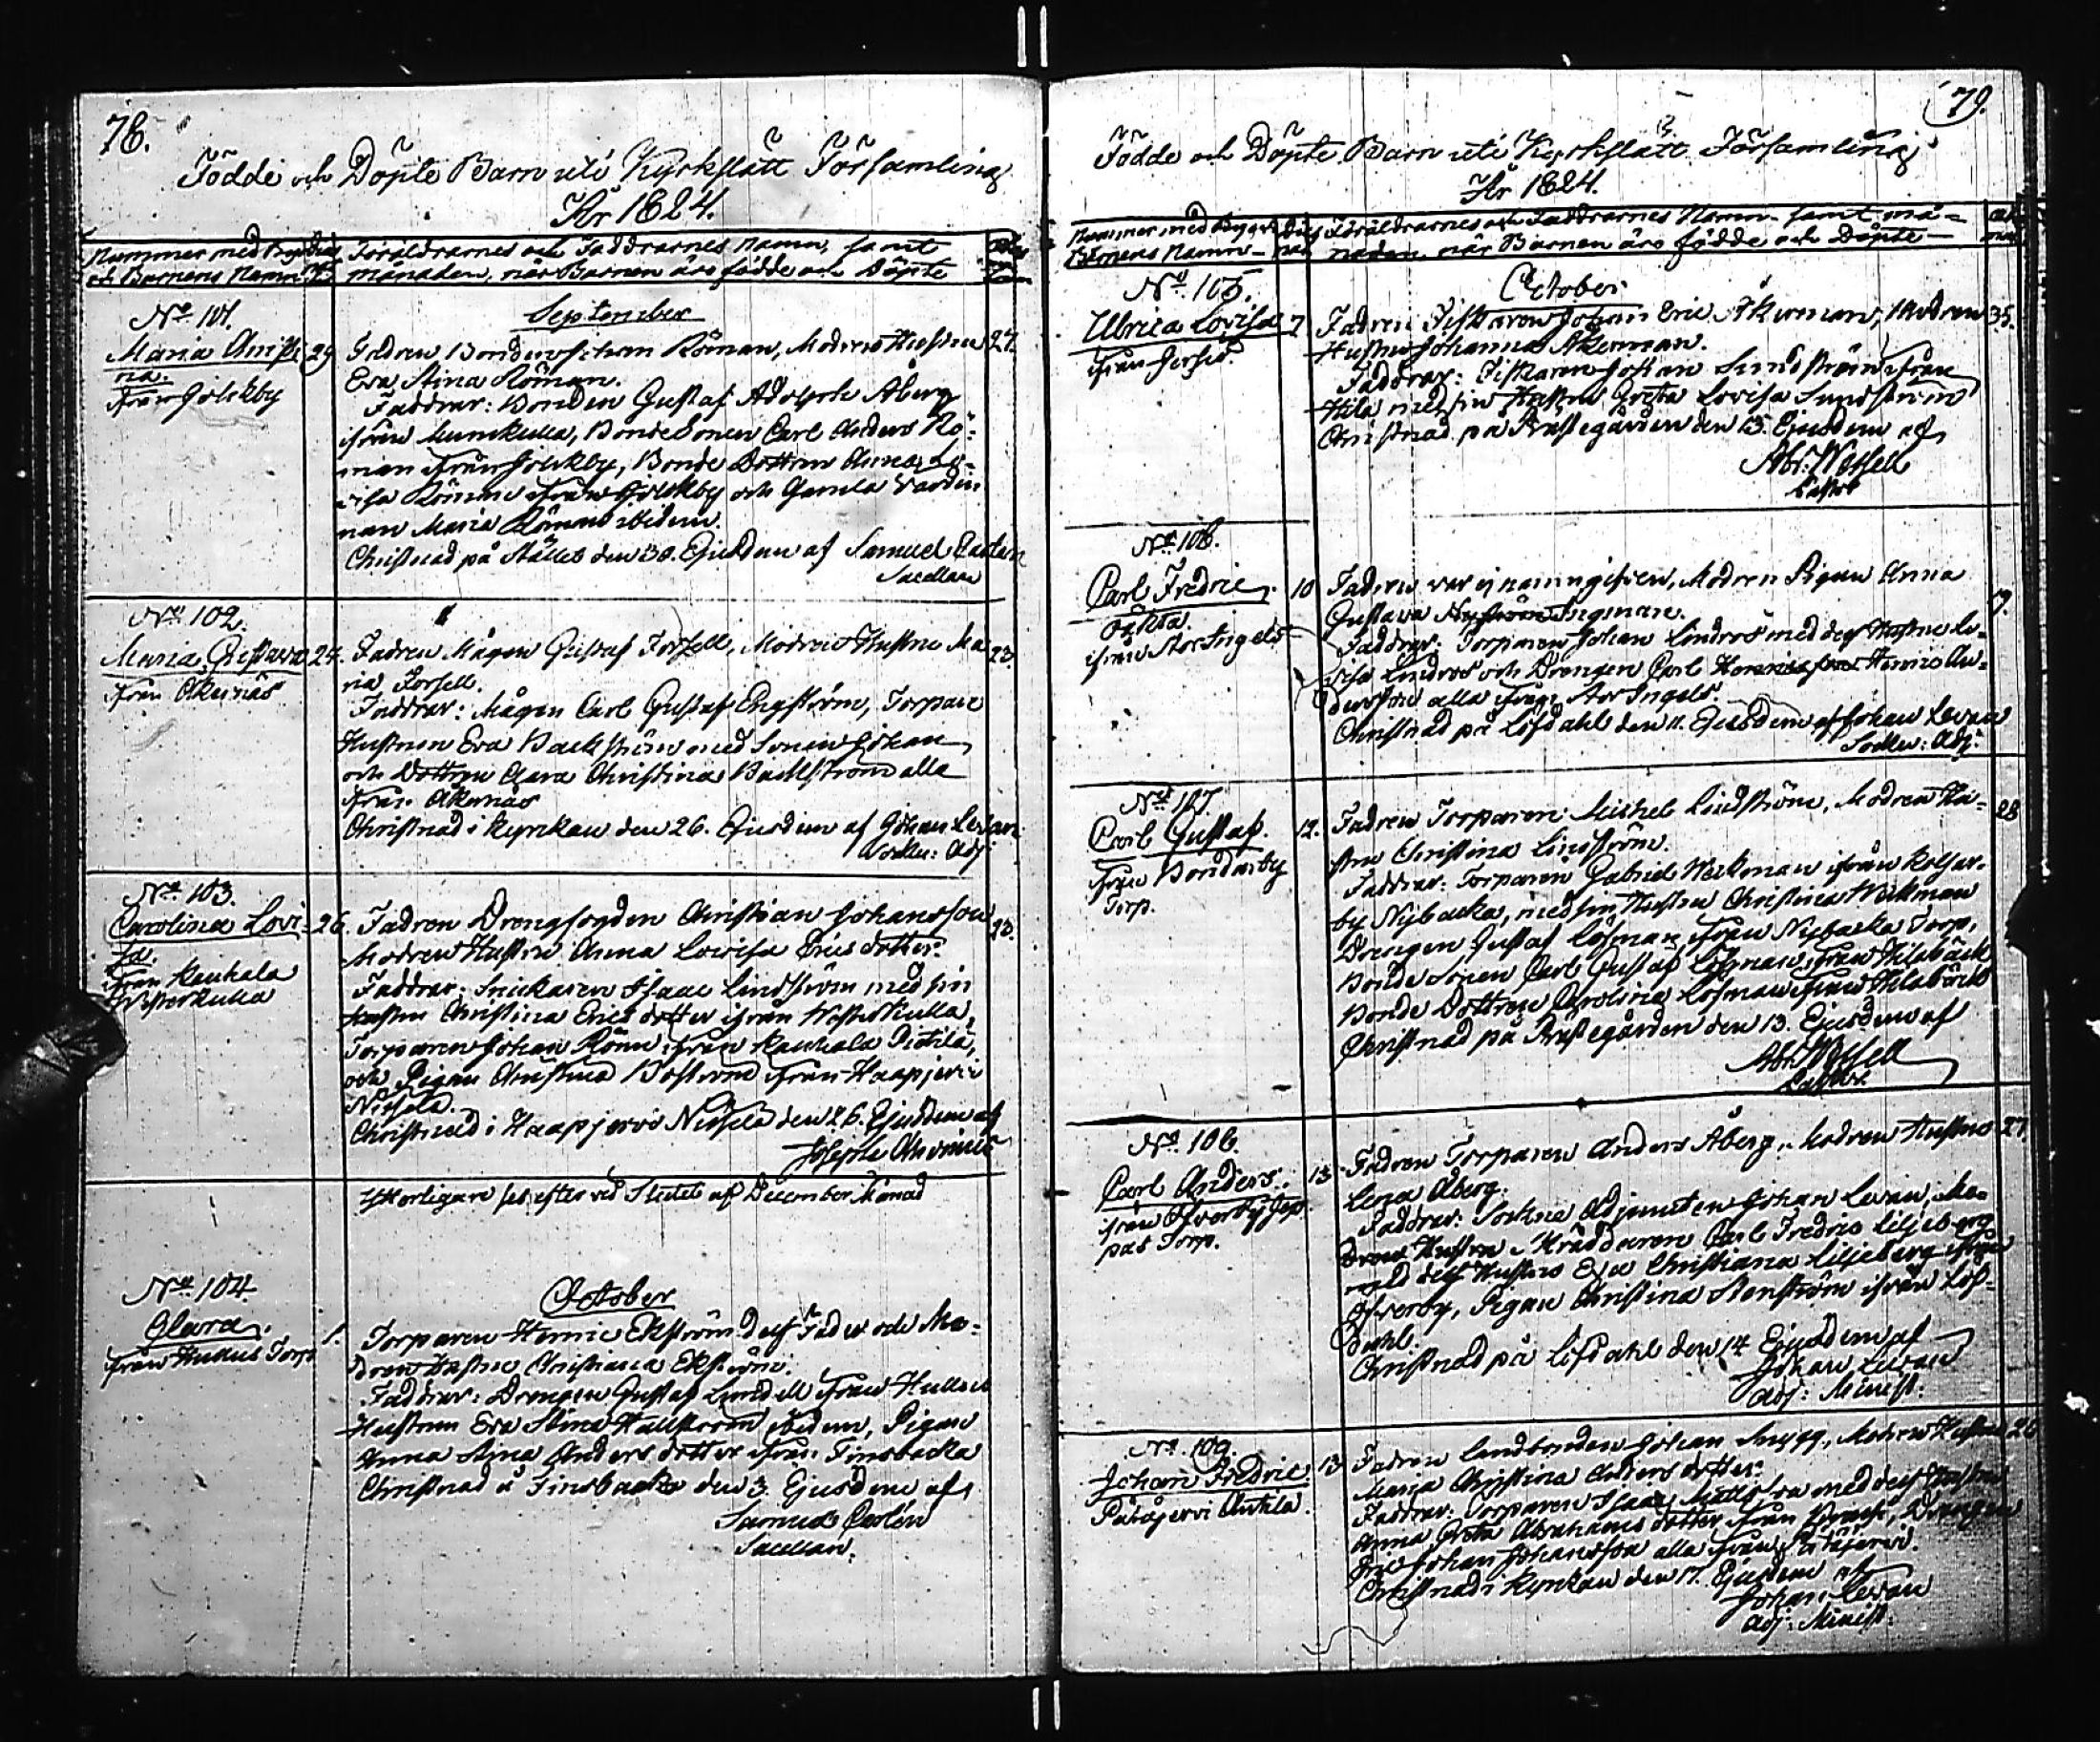 78.
Födde och Döpte Barn uti Kyrkslätt Församling
År 1824.
Nummer med Byarnes
och Barnens Namn
Föräldrarnes och Faddrarnes Namn, samt
månaden, när Barnen äro födde och Döpte
September
No 101.
Maria Christi 29
na.
ifrån Jolckby
Fadren Bonden Johan Röman, Modren Hustru 27.
Eva Stina Röman.
Faddrar: Bonden Gustaf Adolph Åberg
ifrån Munkulla, Bonde Sonen Carl Anders Rö-
man ifrån Jolckby, Bonde Dottren Anna Lo-
visa Röman ifrån Jolckby och Gamla Värdin-
nan Maria Röman ibidem.
Christnad på Stället den 30. Ejusdem af Samuel Carlén
Sacellan
No 102.
Maria Gustava 24.
ifrån Åkernäs
Fadren Mågen Gustaf Forsell, Modren Hustru Ma 23.
ria Forsell.
Faddrar: Mågen Carl Gustaf Engström, Torpare
Hustrun Eva Backström med Sonen Johan
och Dottren Clara Christina Backström alla
ifrån Åkernäs
Christnad i Kyrkan den 26. Ejusdem af Johan Levan
Sockn: Adj:
No 103.
Carolina Lovi- 26
sa.
ifrån Kauhala
Wästerkulla
Fadren Drengfogden Christian Johansson
Modren Hustru Anna Lovisa Ericsdotter.
Faddrar: Snickaren Isaac Lindström med sin
Hustru Christina Ericsdotter ifrån Westerkulla,
Torparen Johan Rönn ifrån Kauhala Pietilä,
och Pigan Christina Boström ifrån Haapjervi
Nissela.
Christnad i Haapjervi Nissela den 26. Ejusdem af
Joseph
Ytterligare ses efter vid Slutet af December Månad
October
No 104.
Clara. 1.
ifrån Hullus Torp
Torparen Henric Ekström dess Fader och Mo-
dren Hustru Christiana Ekström.
Faddrar: Drengen Gustaf Lundell ifrån Hullus
Hustrun Eva Stina Hallström ibidem, Pigan
Anna Stina Anders dotter ifrån Finsbacka
Christnad å Finsbacka den 3. Ejusdem af
Samuel Carlén
Sacellan.
79.
Födde och Döpte Barn uti Kyrkslätt Församling
År 1824.
Nummer med Byarnes
Barnens Namn
Föräldrarnes och Faddrarnes Namn samt må-
naden, när Barnen äro födde och Döpte
October
No 105.
Ulrica Lovisa 7
Fadren Fiskaren Johan Eric Åkerman, Modren 35.
Hustru Johanna Åkerman.
Faddrar: Fiskaren Johan Sundström ifrån
Hila med sin Hustru Greta Lovisa Sundström
Christnad på Prästegården den 15. Ejusdem af
Abr: Wetzell
Pastor
No 106.
Carl Fredric 10
oäkta.
ifrån Stor Ingels
Fadren var ej namngifven, Modren Pigan Anna
Gustava Ingman. 19.
Faddrar: Torparen Johan Lindros med dess Hustru Lo-
visa Lindros och Drengen Carl Henric An-
dersson alla ifrån Stor Ingels.
Christnad på Löfdahl den 11. Ejusdem af Johan Levan
Sockn: Adj:
No 107.
Carl Gustaf. 12.
ifrån Bondarby
Torp.
Fadren Torparen Michel Lindström, Modren Hu- 28
stru Christina Lindström.
Faddrar: Torparen Gabriel Weckman ifrån Kolsar-
by Nybacka, med sin Hustru Christina Weckman
Drengen Gustaf Löfman ifrån Nybacka Torp,
Bonde Sonen Carl Gustaf Löfman ifrån Hilabäck
Bonde Dottren Carolina Löfman ifrån Hilabäck
Christnad på Prästegården den 13. Ejusdem af
Abr: Wetzell
Pastor.
No 108.
Carl Anders. 13
ifrån Öfverby Jep
pas Torp.
Fadren Torparen Anders Åberg, Modren Hustru 27
Lena Åberg.
Faddrar: Sockne Adjuncten Johan Levan,
Hustru Skräddaren Carl Fredric Liljeberg
med dess Hustru Eva Christiana Liljeberg ifrån
Öfverby, Pigan Christina Stenström ifrån Löf-
dahl.
Christnad på Löfdahl den 14 Ejusdem af
Johan Levan
Adj: Minist:
No 109.
Johan Fredric 13
Påtäjervi Anttila.
Fadren Landbonden Johan Snygg, Modren Hustru 26
Maria Christina Anders dotter.
Faddrar: Torparen Isaac Mattsson med dess Hustru
Anna Greta Abrahams dotter ifrån Drengen
Eric Johan Johansson alla ifrån Påtäjervi.
Christnad i Kyrkan den 17. Ejusdem af
Johan Levan
Adj: Minist: